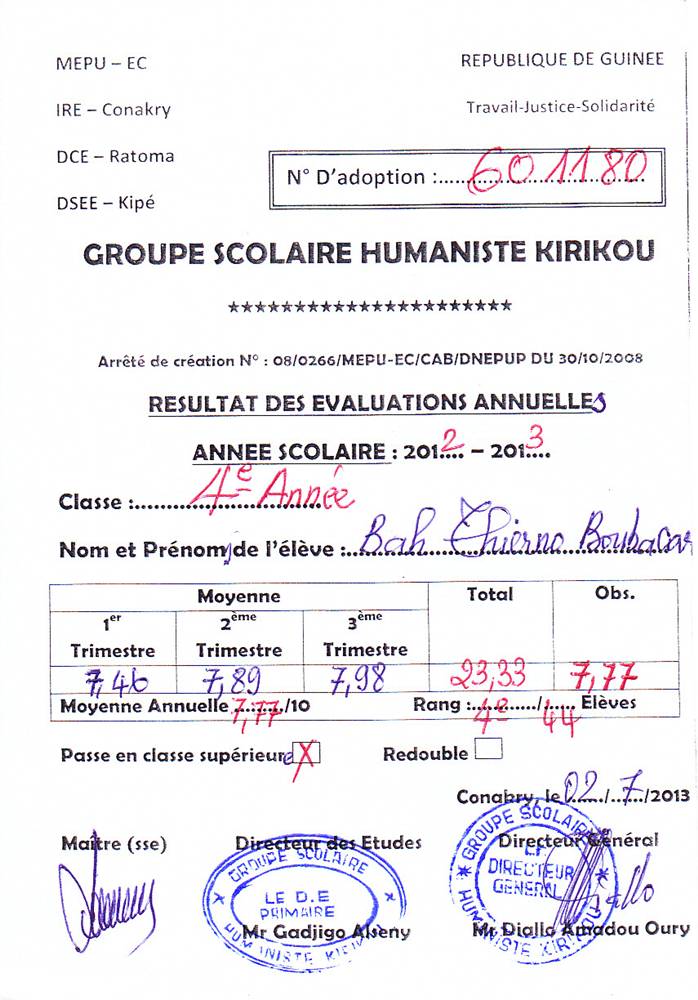 MEPU – EC
REPUBLIQUE DE GUINEE
IRE – Conakry
Travail-Justice-Solidarité
DCE – Ratoma
N° D'adoption :......601180......
DSEE – Kipé
GROUPE SCOLAIRE HUMANISTE KIRIKOU
**********************
Arrêté de création N° : 08/0266/MEPU-EC/CAB/DNEPUP DU 30/10/2008
RESULTAT DES EVALUATIONS ANNUELLEs
ANNEE SCOLAIRE : 2012.... – 2013....
Classe :......4e Année
Nom et Prénoms de l'élève :......Bah Thierno Boubacar
Moyenne Total Obs.
1er Trimestre 2ème Trimestre 3ème Trimestre
7,46 7,89 7,98 23,33 7,77
Moyenne Annuelle 7,77/10 Rang :...4e.../...44... Élèves
Passe en classe supérieure X Redouble
Conakry, le 02/7/2013
Maître (sse) Directeur des Etudes Directeur Général
GROUPE SCOLAIRE
LE D.E
PRIMAIRE
HUMANISTE KIRIKOU
GROUPE SCOLAIRE
Le
DIRECTEUR
GENERAL
HUMANISTE KIRIKOU
Diallo
Mr Gadjigo Alseny Mr Diallo Amadou Oury